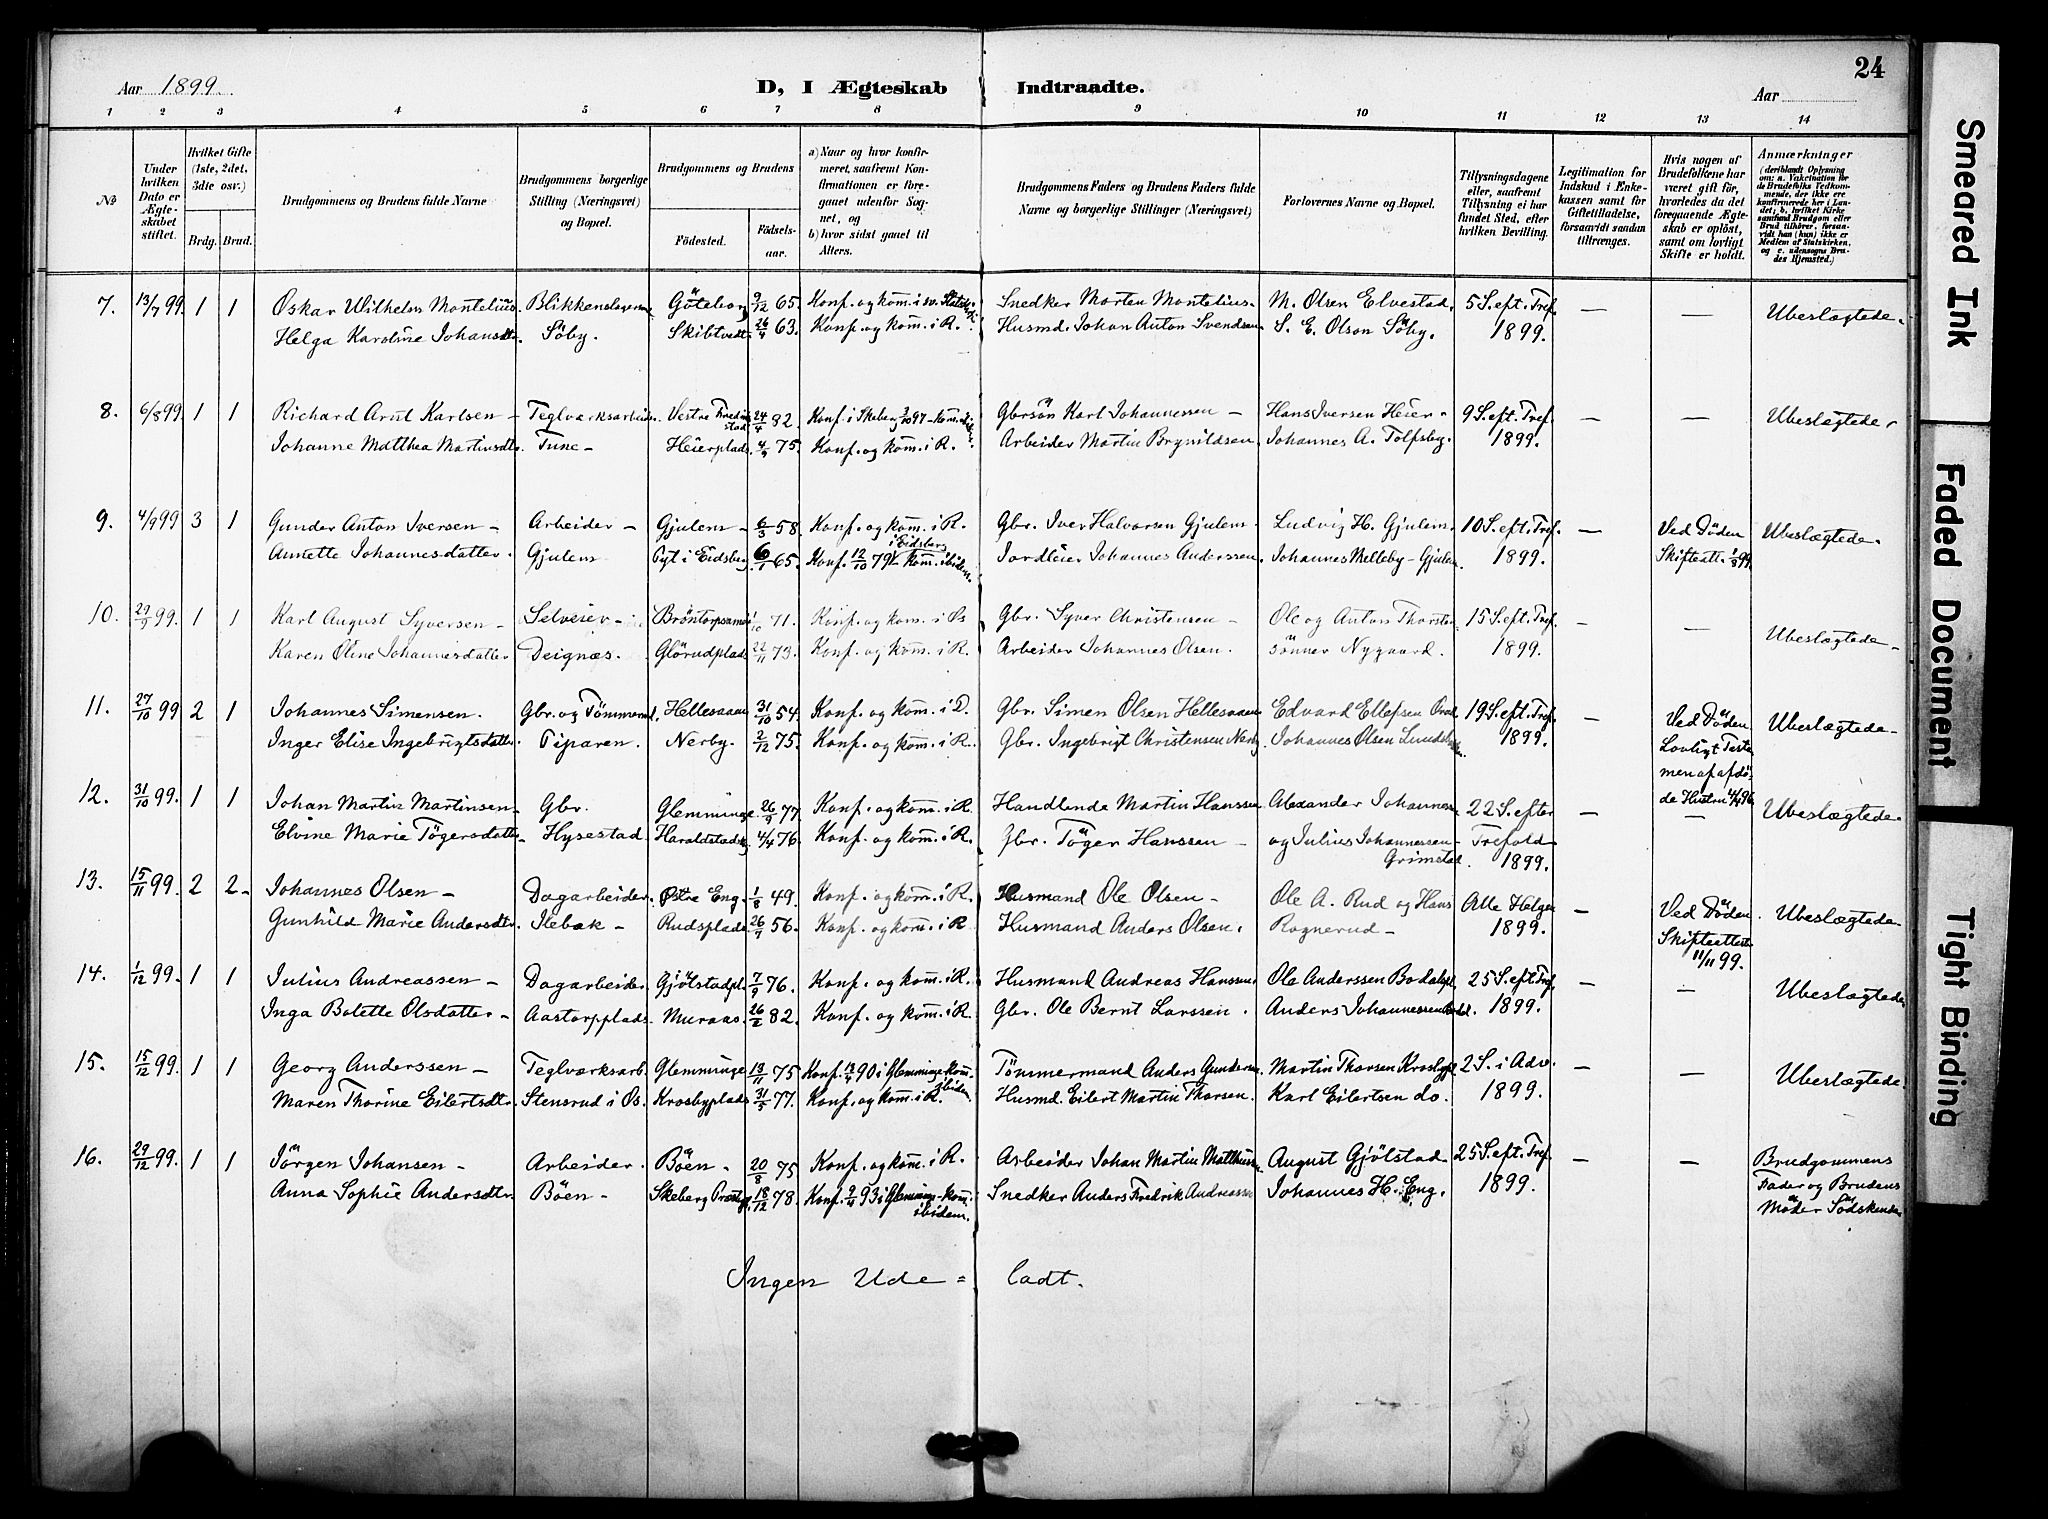 24
Aar 1899.
D, I Ægteskab Indtraadte.
Aar
1 2 3 4 5 6 7 8 9 10 11 12 13 14
No
Under hvilken Dato er Ægteskabet stiftet.
Hvilket Gifte (1ste, 2det, 3die osv.)
Brdg. Brud.
Brudgommens og Brudens fulde Navne
Brudgommens borgerlige Stilling (Næringsvei) og Bopæl.
Brudgommens og Brudens
Fødested.
Fødselsaar.
a) Naar og hvor konfirmeret, saafremt Konfirmationen er foregaaet udenfor Sognet, og
b) hvor sidst gaaet til Alters.
Brudgommens Faders og Brudens Faders fulde Navne og borgerlige Stillinger (Næringsvei)
Forlovernes Navne og Bopæl.
Tillysningsdagene eller, saafremt Tillysning ei har fundet Sted, efter hvilken Bevilling.
Legitimation for Indskud i Enkekassen samt for Giftetilladelse, forsaavidt saadan tiltrænges.
Hvis nogen af Brudefolkene har været gift før, hvorledes da det foregaaende Ægteskab er opløst, samt om lovligt Skifte er holdt.
Anmærkninger (deriblandt Oplysning om: a. Vakcination for de Brudefolks Vedkommende, der ikke ere konfirmerede her i Landet; b. hvilket Kirkesamfund Brudgom eller Brud tilhører, forsaavidt han (hun) ikke er Medlem af Statskirken, og c. udensogns Brudes Hjemsted.)
7. 13/7 99 1 1 Oskar Wilhelm Montelius Blikkenslager Göteborg 9/12 65. Konf. og kom. i sv. Snedker Morten Montelius. M. Olsen Elvestad. 5 S. eft. Tref. — — Ubeslægtede.
Helga Karoline Johansdtr. Söby. Skibtvedt. 26/4 63. Konf. og kom. i R. Husmd. Johan Anton Svendsen S. E. Olson Söby. 1899.
8. 6/8 99. 1 1 Richard Arnt Karlsen — Teglværksarbeider. Vestre Fredrikstad 24/4 82. Konf. i Skeberg 3/10 97 - Kom. Gbrsön Karl Johannessen — Hans Iversen Heier - 9 S. eft. Tref. — — Ubeslægtede.
Johanne Matthea Martinsdtr. Tune — Heierplads. 4/9 75. Konf. og kom. i R. Arbeider Martin Brynildsen. Johannes A. Tolfsby. 1899.
9. 4/9 99 3 1 Gunder Anton Iversen — Arbeider — Gjulem — 6/3 58. Konf. og kom. i R. Gbr. Iver Halvorsen Gjulem. Ludvig H. Gjulem. 10 S. eft. Tref. — Ved Döden Ubeslægtede.
Annette Johannesdatter. Gjulem Pyt i Eidsberg 6/1 65. Konf. 12/10 79 i Eidsberg kom. ibidem. Jordleier Johannes Anderssen. Johannes Melleby - Gjulem 1899. Skifteatt. 1/9 99.
10. 29/9 99. 1 1 Karl August Syversen — Selveier — Bröntorpsameie 1/10 71. Konf. og kom. i Os Gbr. Syver Christensen — Ole og Anton Thorsten- 15 S. eft. Tref. — — Ubeslægtede.
Karen Oline Johannesdatter Deignæs. Glörudplads 22/11 73. Konf. og kom. i R. Arbeider Johannes Olsen. sönner Nygaard. 1899.
11. 27/10 99 2 1 Johannes Simensen. Gbr. og Tömmermd. Hellesaaen 31/10 54. Konf. og kom. i D. Gbr. Simen Olsen Hellesaaen Edvard Ellefsen 19 S. eft. Tref. — Ved Döden Ubeslægtede.
Inger Elise Ingebrigtsdatter. Tiparen. Nerby. 2/12 75. Konf. og kom. i R. Gbr. Ingebrigt Christensen Nerby. Johannes Olsen 1899. Lovligt Testamen af afdöde Hustru 4/9 96.
12. 31/10 99. 1 1 Johan Martin Martinsen — Gbr. Glemminge. 26/9 77. Konf. og kom. i R. Handlende Martin Hanssen. Alexander Johannessen 22 S. efter — — Ubeslægtede.
Elvine Marie Tögersdatter — Hysestad Haraldstads 4/4 76. Konf. og kom. i R. Gbr. Töger Hanssen — og Julius Johannessen Trefold
Grimstad. 1899.
13. 15/11 99. 2 2 - Johannes Olsen — Dagarbeider. Østre Eng. 1/8 49. Konf. og kom. i R. Husmand Ole Olsen - Ole A. Rud og Hans Alle Helgen — Ved Döden. Ubeslægtede
Gunhild Marie Andersdtr. Ilebæk — Rudsplads 26/7 56. Konf. og kom. i R Husmand Anders Olsen. Rognerud - 1899. Skifteattest 11/11 99.
14. 1/12 99. 1 1 Julius Andreassen — Dagarbeider. Gjölstadpl. 7/9 76. Konf. og kom. i R. Husmand Andreas Hanssen. Ole Anderssen Bodalspl. 25 S. eft. Tref. — — Ubeslægtede
Inga Bolette Olsdatter — Aastorpplads. Muraas. 26/2 82. Konf. og kom. i R. Gbr. Ole Bernt Larssen. Anders Johannessen 1899.
15. 15/12 99. 1 1 Georg Anderssen — Teglværksarb. Glemminge 13/11 75 Konf. 13/4 90 i Glemminge kom. ibidem. Tömmermand Anders Gundersen. Martin Thorsen Krosbypl. 2 S. i Adv. — — Ubeslægtede.
Maren Thorine Eilertsdtr. Stensrud i Os. Krosbyplads 31/5 77. Konf. og kom. i R. Husmd. Eilert Martin Thorsen. Karl Eilertsen do. 1899.
16. 29/12 99. 1 1 Jörgen Johansen — Arbeider. Böen — 20/8 75 Konf. og kom. i R. Arbeider Johan Martin Matthisen August Gjölstad 25 S. eft. Tref. — — Brudgommens
Anna Sophie Andersdtr. Böen — Skeberg Prestg. 18/12 78. Konf. 9/4 93 i Glemminge - kom. ibidem. Snedker Anders Fredrik Andreassen Johannes H. Eng. 1899. Fader og Brudens
Moder Södskende
Ingen Ude = ladt.
Smeared Ink
Faded Document
Tight Binding